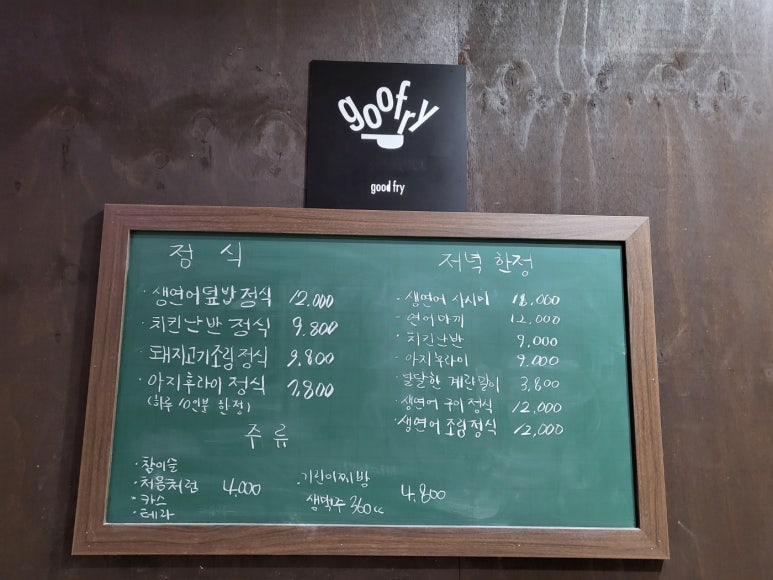 goofry
good fry
정식
· 생연어덮밥 정식 12,000
· 치킨난반 정식 9.800
· 돼지고기조림 정식 9.800
· 아지후라이 정식 7.800
(하루 10인분 한정)
저녁 한정
· 생연어 사시미 18,000
· 연어마끼 12,000
· 치킨난반 9,000
· 아지후라이 9.000
· 달달한 계란말이 3,800
· 생연어 구이 정식 12,000
· 생연어 조림 정식 12,000
주류
· 참이슬
· 처음처럼 4.000
· 카스
· 테라
· 기린이찌방
생맥주 360cc 4.800